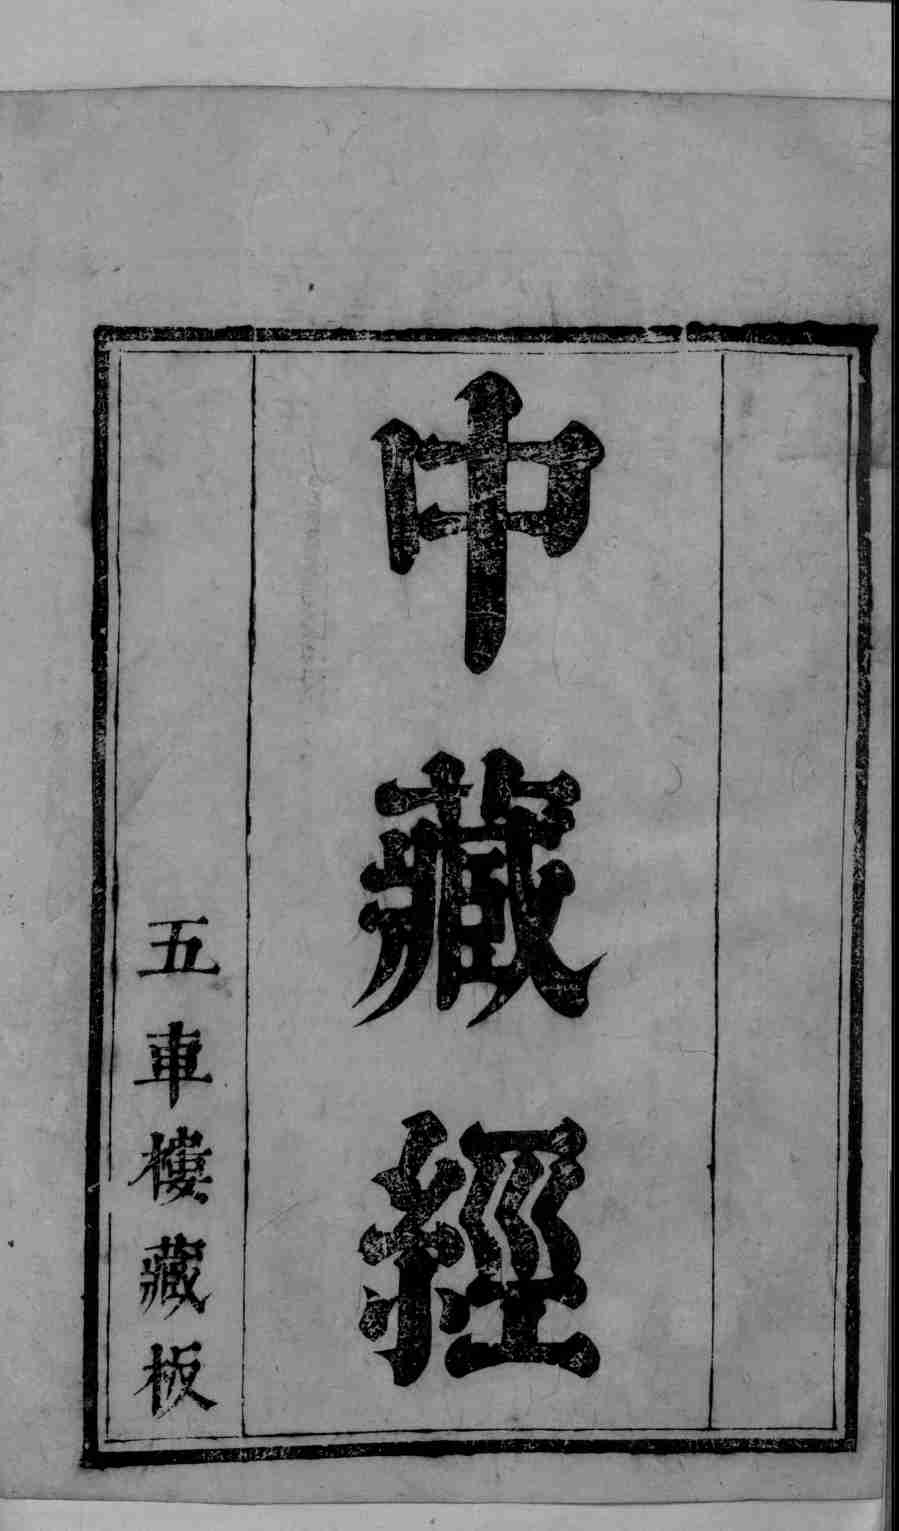 中藏經
五車樓藏板